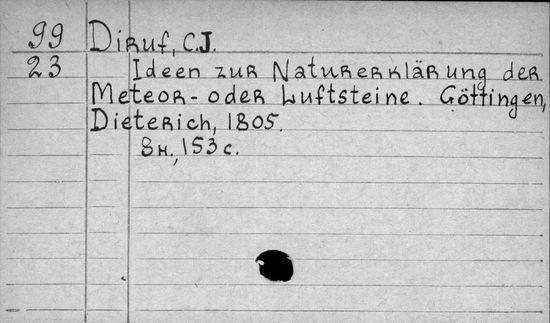 99 Diruf, C.J.
23 Ideen zur Naturerklärung der
Meteor- oder Luftsteine. Göttingen,
Dieterich, 1805.
8н., 153 с.